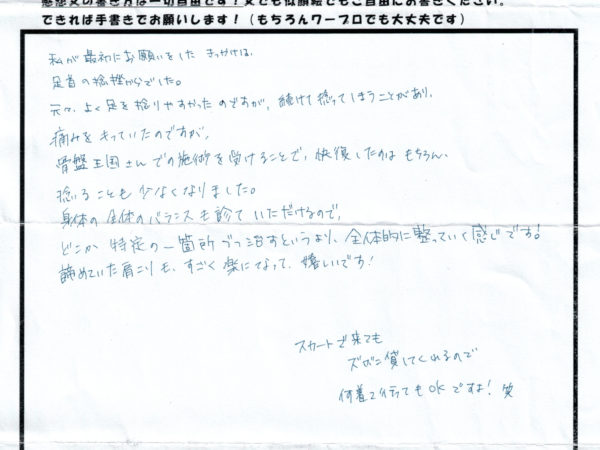 感想文の書き方は一切自由です！文でも似顔絵でもご自由にお書きください。
できれば手書きでお願いします！（もちろんワープロでも大丈夫です）
私が最初にお願いをした きっかけは、
足首の捻挫からでした。
元々、よく足を捻りやすかったのですが、続けて捻ってしまうことがあり、
痛みをもっていたのですが、
骨盤王国さんでの施術を受けることで、快復したのはもちろん、
捻ることも少なくなりました。
身体の全体のバランスも診ていただけるので、
どこか特定の一箇所づつ治すというより、全体的に整っていく感じです！
諦めていた肩こりも、すごく楽になって、嬉しいです！
スカートで来ても
ズボン貸してくれるので
何着て行ってもOKですよ！笑